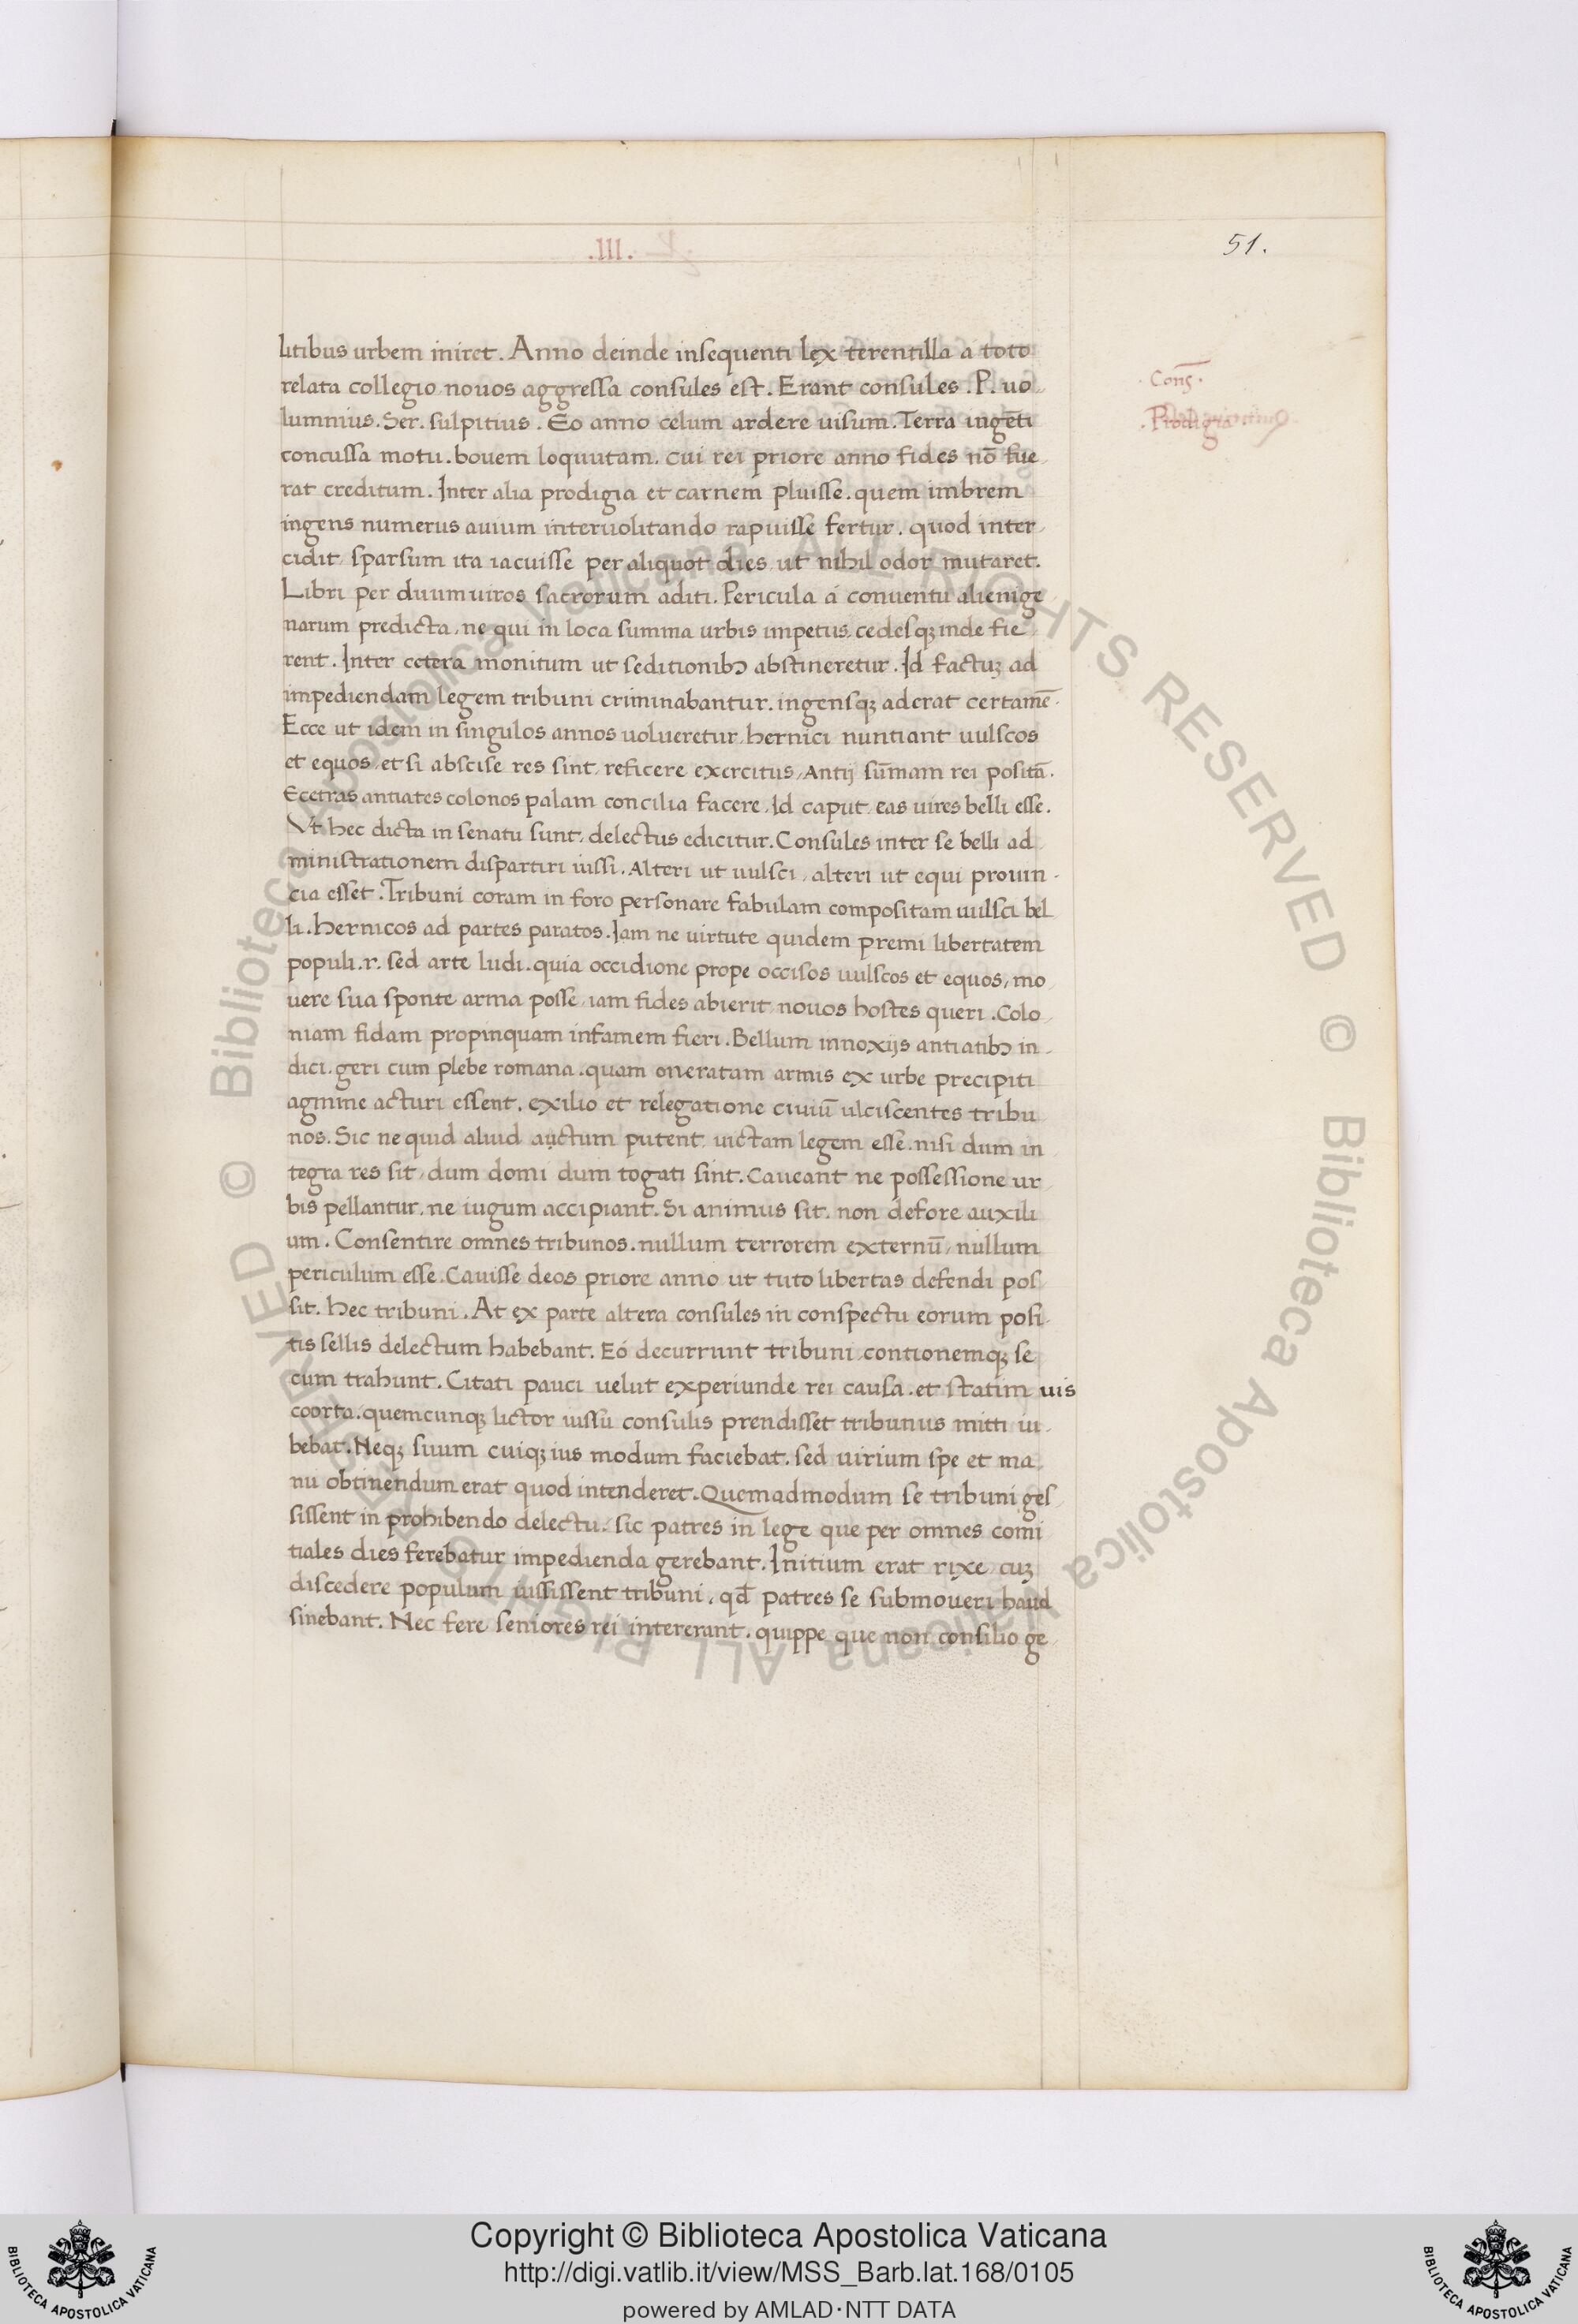 .III.
51.
litibus urbem iniret. Anno deinde insequenti lex terentilla a toto
relata collegio nouos aggressa consules est. Erant consules .P. uo
lumnius. Ser. sulpitius. Eo anno celum ardere uisum. Terra ingēti
concussa motu. bouem loquutam. cui rei priore anno fides nō fue
rat creditum. Inter alia prodigia et carnem pluisse. quem imbrem
ingens numerus auium interuolitando rapuisse fertur. quod inter
cidit sparsum ita iacuisse per aliquot dies ut nihil odor mutaret.
Libri per duumuiros sacrorum aditi. Pericula á conuentu alienige
narum predicta, ne qui in loca summa urbis impetus, cedesqꝫ inde fie
rent. Inter cetera monitum ut seditionibꝫ abstineretur. Id factuꝫ ad
impediendam legem tribuni criminabantur. ingensqꝫ aderat certamē.
Ecce ut idem in singulos annos uolueretur, hernici nuntiant uulscos
et equos, et si abscise res sint, reficere exercitus, Antij sūmam rei positā.
Ecetras antiates colonos palam concilia facere, Id caput, eas uires belli esse.
Vt hec dicta in senatu sunt, delectus edicitur. Consules inter se belli ad
ministrationem dispartiri iussi. Alteri ut uulsci, alteri ut equi prouin-
cia esset. Tribuni coram in foro personare fabulam compositam uulsci bel
li. hernicos ad partes paratos. Iam ne uirtute quidem premi libertatem
populi .r. sed arte ludi. quia occidione prope occisos uulscos et equos, mo
uere sua sponte arma posse, iam fides abierit, nouos hostes queri. Colo
niam fidam propinquam infamem fieri. Bellum innoxijs antiatibꝫ in-
dici. geri cum plebe romana. quam oneratam armis ex urbe precipiti
agmine acturi essent. exilio et relegatione ciuiū ulciscentes tribu
nos. Sic ne quid aliud auctum putent, uictam legem esse. nisi dum in
tegra res sit, dum domi dum togati sint. Caueant ne possessione ur
bis pellantur. ne iugum accipiant. Si animus sit. non defore auxili
um. Consentire omnes tribunos. nullum terrorem externū, nullum
periculum esse. Cauisse deos priore anno ut tuto libertas defendi pos
sit. hec tribuni. At ex parte altera consules in conspectu eorum posi
tis sellis delectum habebant. Eó decurrunt tribuni, contionemqꝫ se
cum trahunt. Citati pauci uelut experiunde rei causa. et statim uis
coorta. quemcunqꝫ lictor iussu consulis prendisset tribunus mitti iu-
bebat. Neqꝫ suum cuiqꝫ ius modum faciebat. sed uirium spe et ma
nu obtinendum erat quod intenderet. Quemadmodum se tribuni ges
sissent in prohibendo delectu. sic patres in lege que per omnes comi
tiales dies ferebatur impedienda gerebant. Initium erat rixe, cuꝫ
discedere populum iussissent tribuni, qđ patres se submoueri haud
sinebant. Nec fere seniores rei intererant. quippe que non consilio ge
.Conſ̄.
.Prodigia
© Biblioteca Apostolica Vaticana ALL RIGHTS RESERVED
© Biblioteca Apostolica Vaticana ALL RIGHTS RESERVED
Copyright © Biblioteca Apostolica Vaticana
http://digi.vatlib.it/view/MSS_Barb.lat.168/0105
powered by AMLAD·NTT DATA
BIBLIOTECA APOSTOLICA VATICANA
BIBLIOTECA APOSTOLICA VATICANA